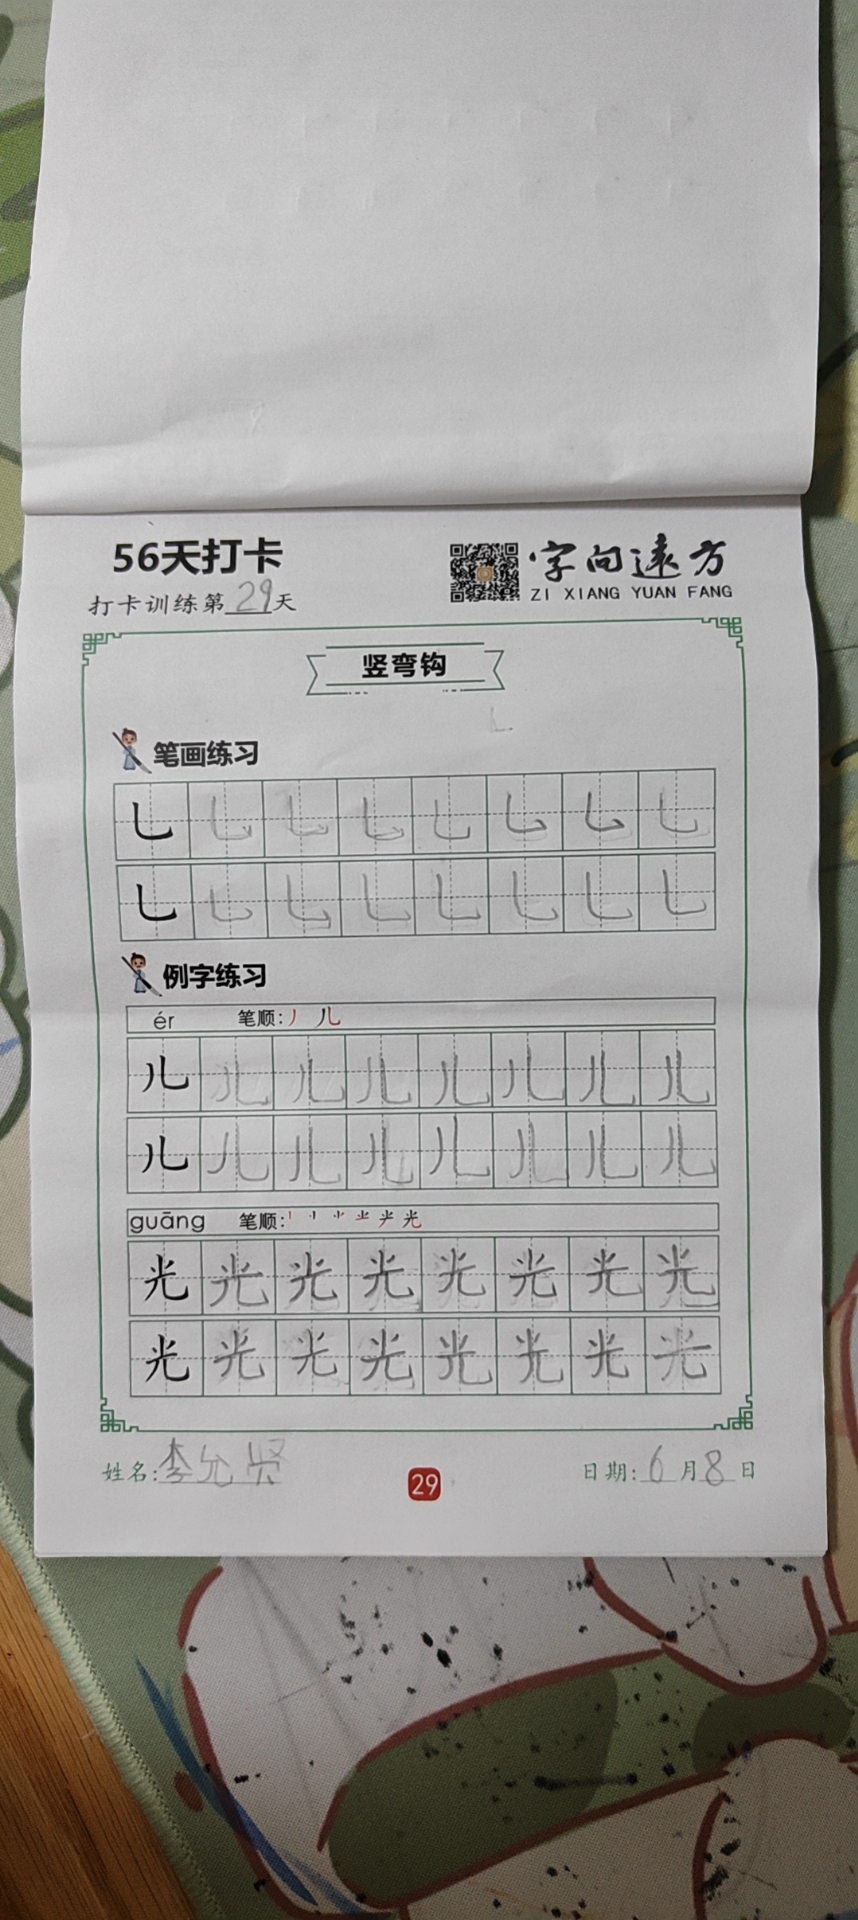 56天打卡
字向远方
ZI XIANG YUAN FANG
打卡训练第29天
竖弯钩
笔画练习
乚 乚 乚 乚 乚 乚 乚 乚
乚 乚 乚 乚 乚 乚 乚 乚
例字练习
ér 笔顺:丿 儿
儿 儿 儿 儿 儿 儿 儿 儿
儿 儿 儿 儿 儿 儿 儿 儿
guāng 笔顺:
光 光 光 光 光 光 光 光
光 光 光 光 光 光 光 光
姓名:李允贤
29
日期:6月8日